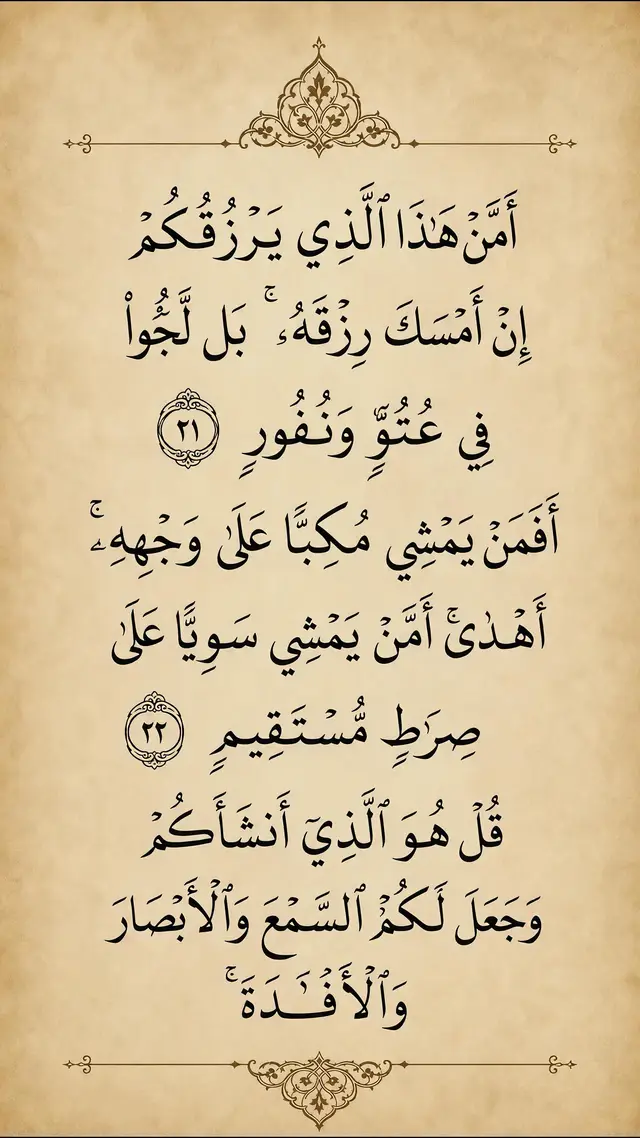 أَمَّنْ هَٰذَا ٱلَّذِي يَرْزُقُكُمْ
إِنْ أَمْسَكَ رِزْقَهُۥ ۚ بَل لَّجُّوا۟
فِي عُتُوٍّ وَنُفُورٍ ٢١
أَفَمَنْ يَمْشِي مُكِبًّا عَلَىٰ وَجْهِهِۦ ۚ
أَهْدَىٰ ۚ أَمَّنْ يَمْشِي سَوِيًّا عَلَىٰ
صِرَٰطٍ مُّسْتَقِيمٍ ٢٢
قُلْ هُوَ ٱلَّذِيٓ أَنشَأَكُمْ
وَجَعَلَ لَكُمُ ٱلسَّمْعَ وَٱلْأَبْصَارَ
وَٱلْأَفْـَٰدَةَ ۚ